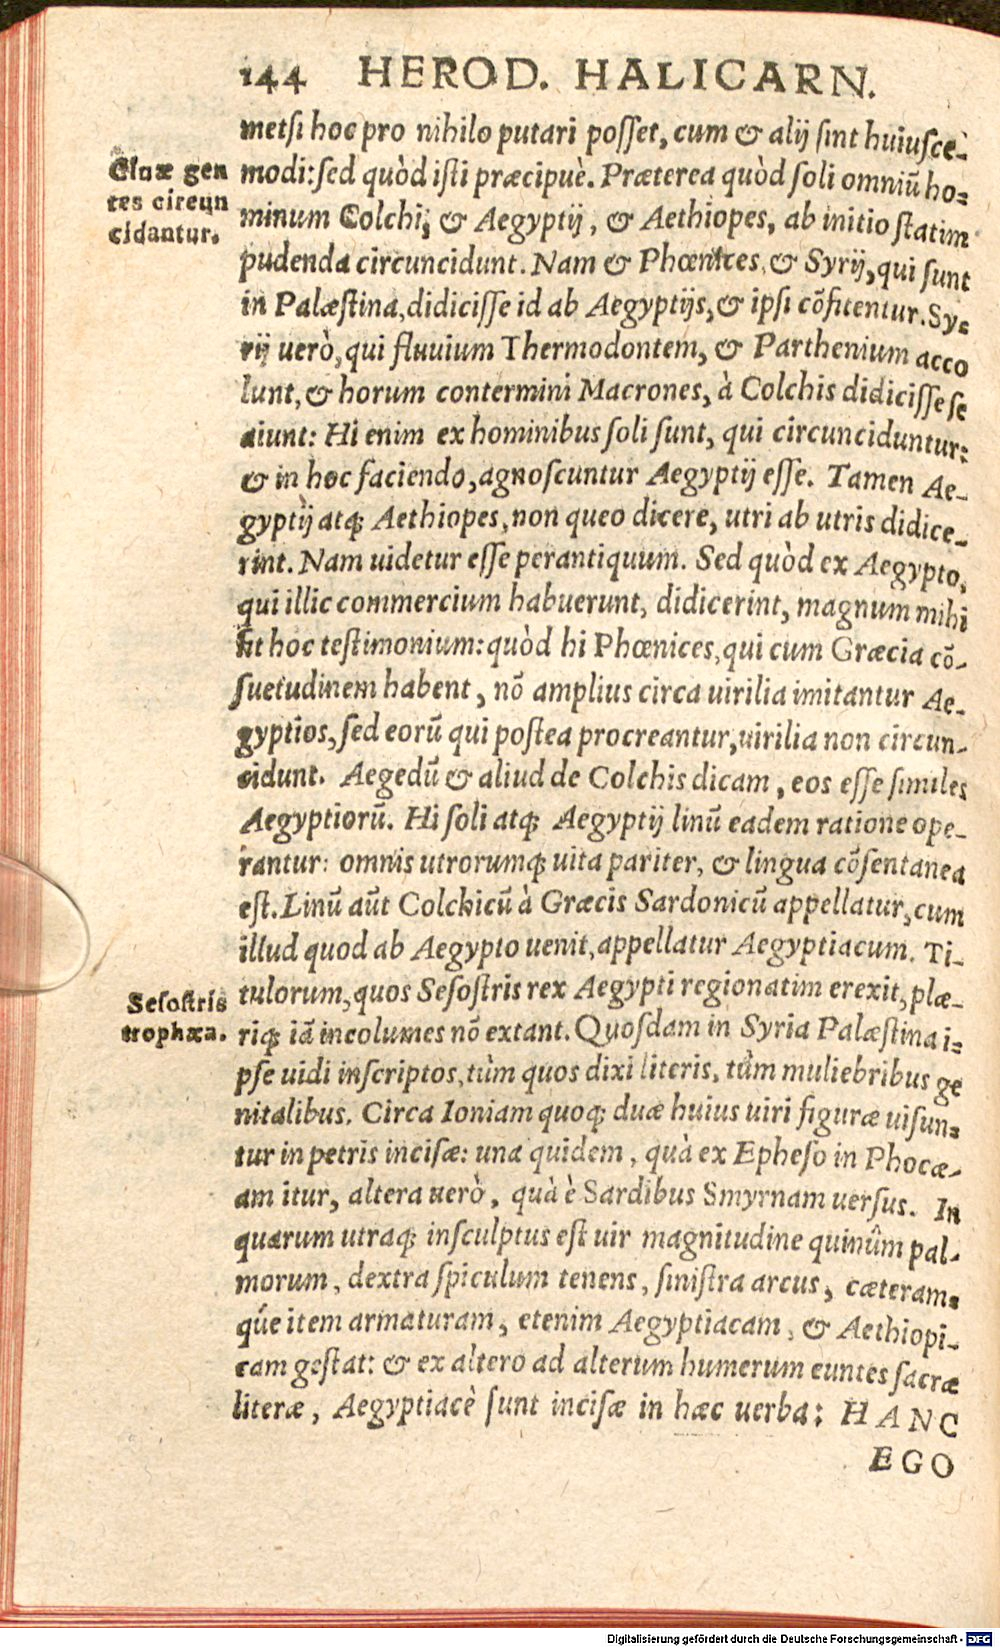 144 HEROD. HALICARN.
metsi hoc pro nihilo putari posset, cum & alij sint huiusce-
modi: sed quòd isti præcipuè. Præterea quòd soli omniũ ho-
minum Colchi, & Aegyptij, & Aethiopes, ab initio statim
pudenda circuncidunt. Nam & Phœnices, & Syrij, qui sunt
in Palæstina, didicisse id ab Aegyptijs, & ipsi cõfitentur. Sy-
rij uerò, qui fluuium Thermodontem, & Parthenium acco
lunt, & horum contermini Macrones, à Colchis didicisse se
aiunt: Hi enim ex hominibus soli sunt, qui circunciduntur:
& in hoc faciendo, agnoscuntur Aegyptij esse. Tamen Ae-
gyptij atq; Aethiopes, non queo dicere, utri ab utris didice-
rint. Nam uidetur esse perantiquum. Sed quòd ex Aegypto,
qui illic commercium habuerunt, didicerint, magnum mihi
fit hoc testimonium: quòd hi Phœnices, qui cum Græcia cõ-
suetudinem habent, nõ amplius circa uirilia imitantur Ae-
gyptios, sed eorũ qui postea procreantur, uirilia non circun-
cidunt. Aegedũ & aliud de Colchis dicam, eos esse similes
Aegyptiorũ. Hi soli atq; Aegyptij linũ eadem ratione ope-
rantur: omnis utrorumq; uita pariter, & lingua cõsentanea
est. Linũ aũt Colchicũ à Græcis Sardonicũ appellatur, cum
illud quod ab Aegypto uenit, appellatur Aegyptiacum. Ti-
tulorum, quos Sesostris rex Aegypti regionatim erexit, plæ-
riq; iã incolumes nõ extant. Quosdam in Syria Palæstina i-
pse uidi inscriptos, tùm quos dixi literis, tùm muliebribus ge
nitalibus. Circa Ioniam quoq; duæ huius uiri figuræ uisun-
tur in petris incisæ: una quidem, quà ex Epheso in Phocæ-
am itur, altera uerò, quà è Sardibus Smyrnam uersus. In
quarum utraq; insculptus est uir magnitudine quinûm pal-
morum, dextra spiculum tenens, sinistra arcus, cæteram-
q́ue item armaturam, etenim Aegyptiacam, & Aethiopi-
cam gestat: & ex altero ad alterum humerum euntes sacræ
literæ, Aegyptiacè sunt incisæ in hæc uerba: HANC
EGO
Quæ gen
tes circun
cidantur.
Sesostris
trophæa.
Digitalisierung gefördert durch die Deutsche Forschungsgemeinschaft - DFG